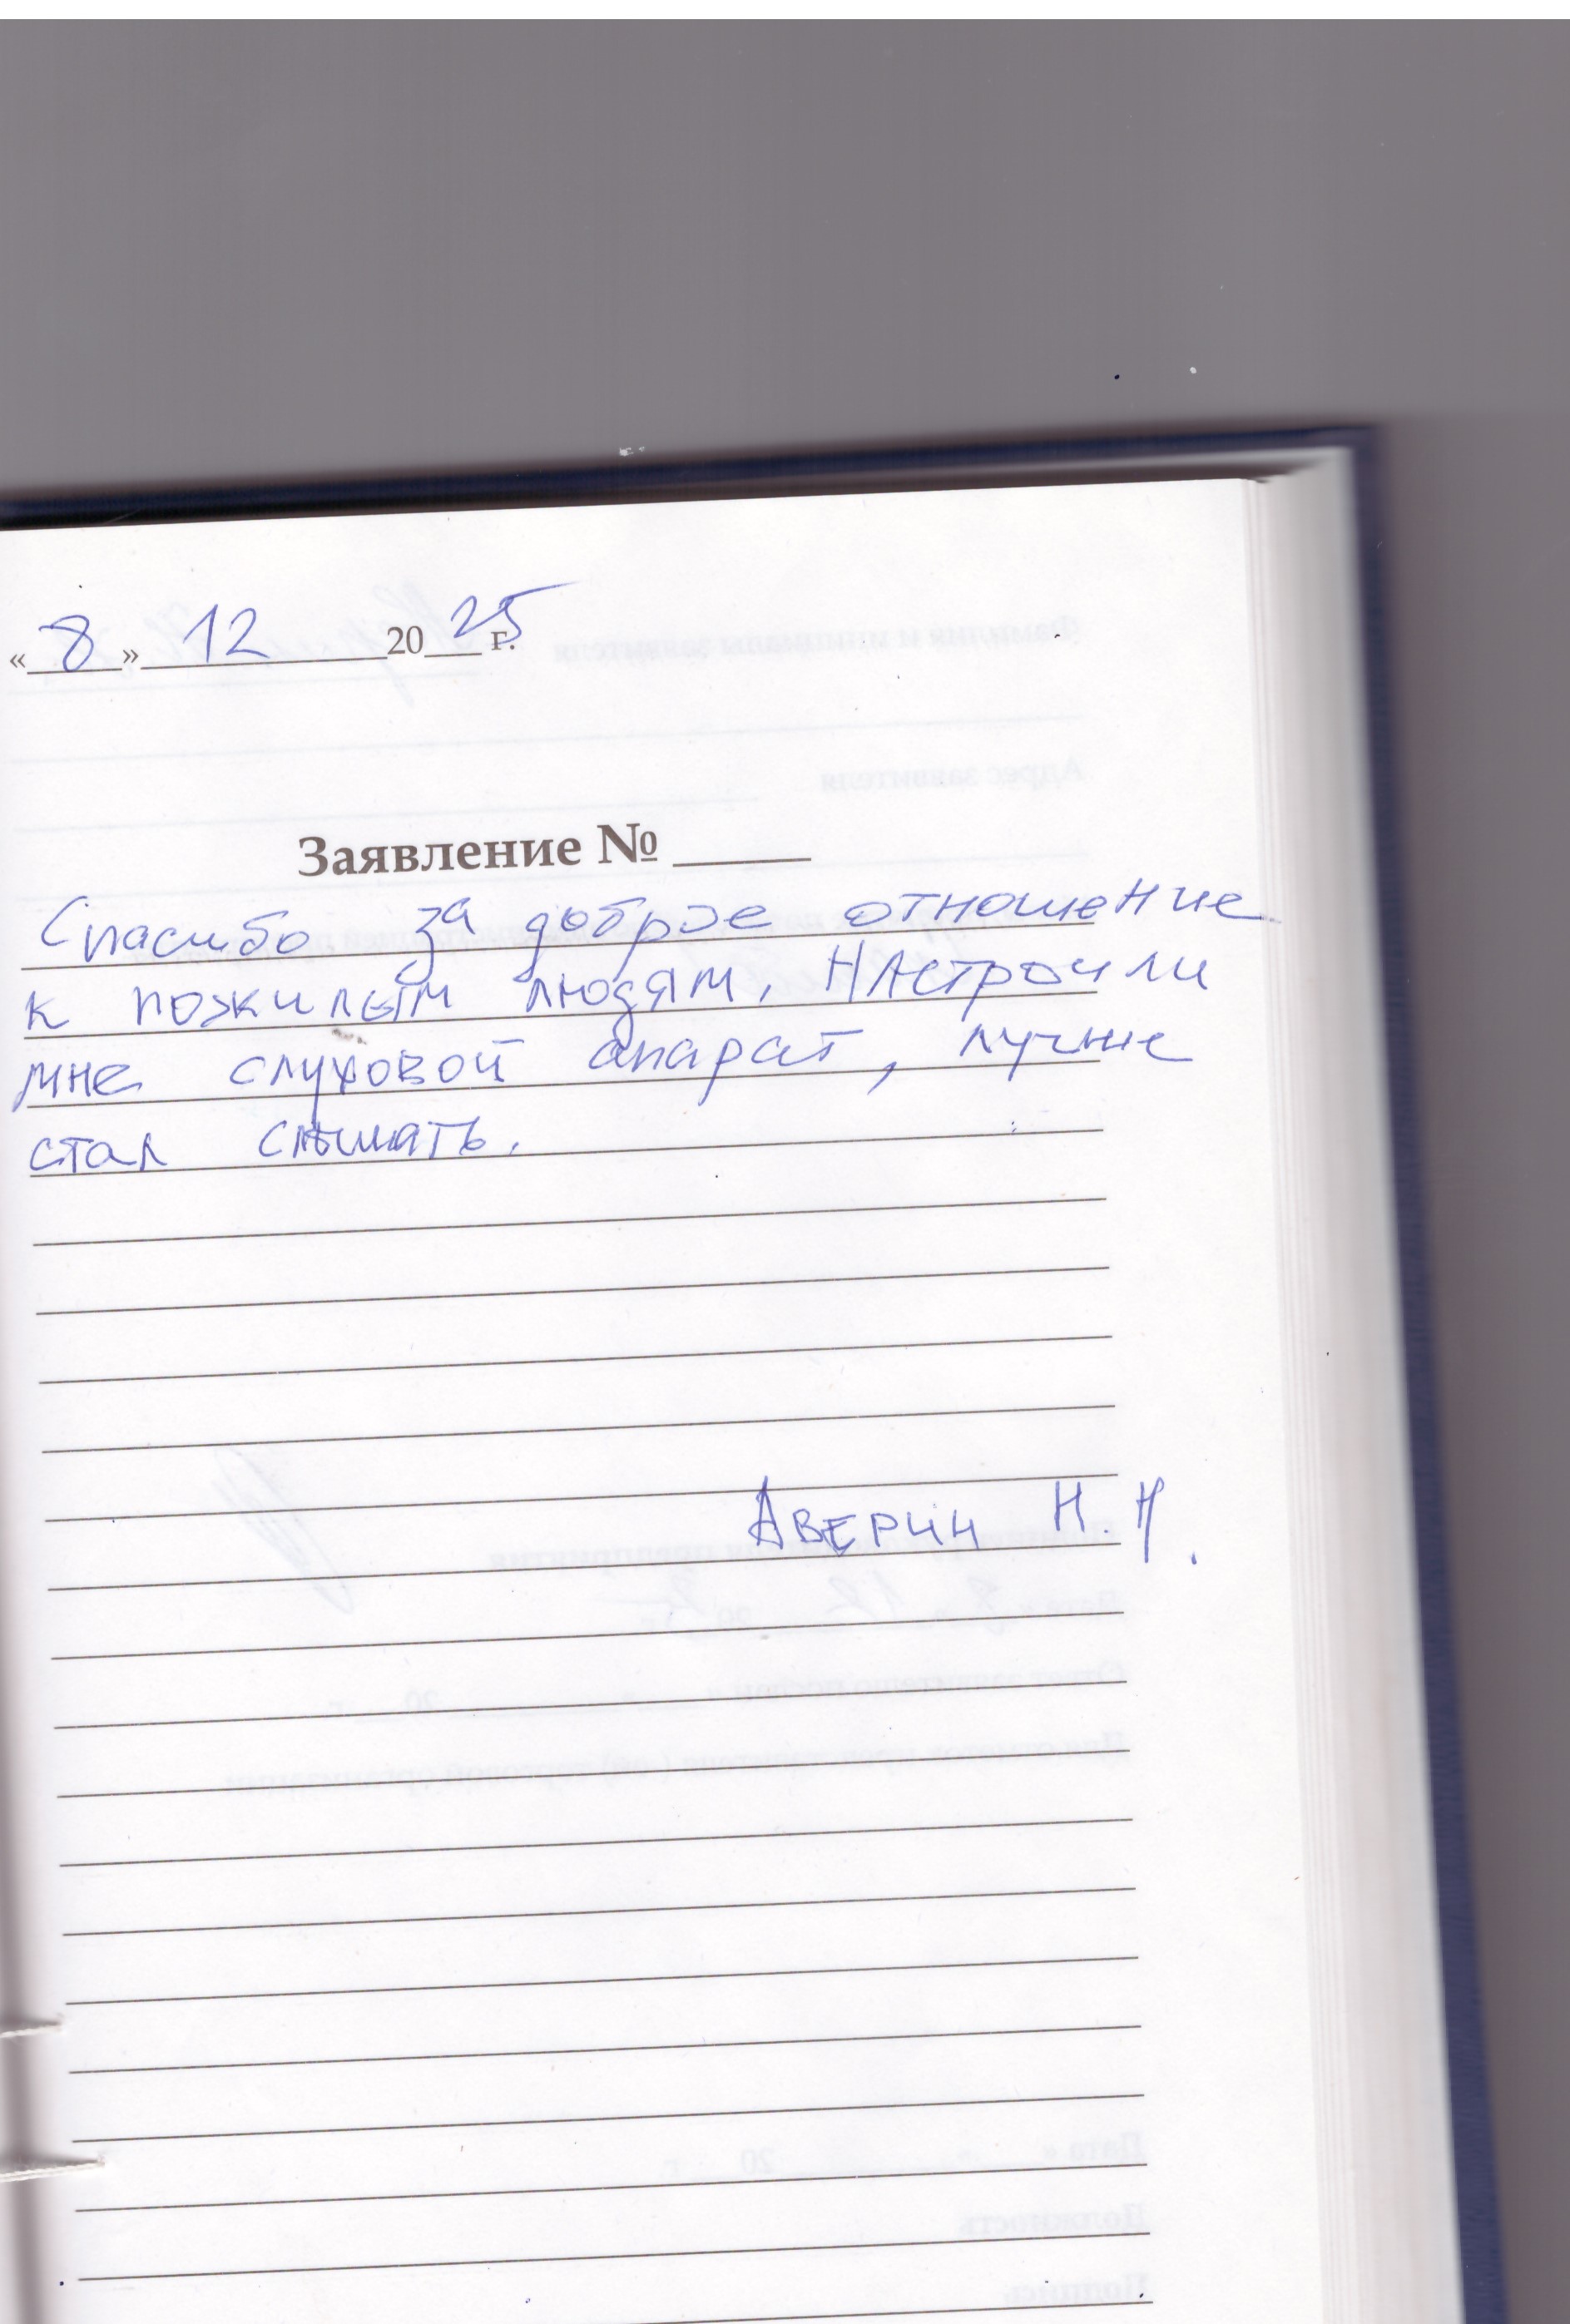 «8» 12 2025 г.
Заявление № ____
Спасибо за доброе отношение
к пожилым людям. Настроили
мне слуховой апарат, лучше
стал слышать.
Аверин Н. Н.